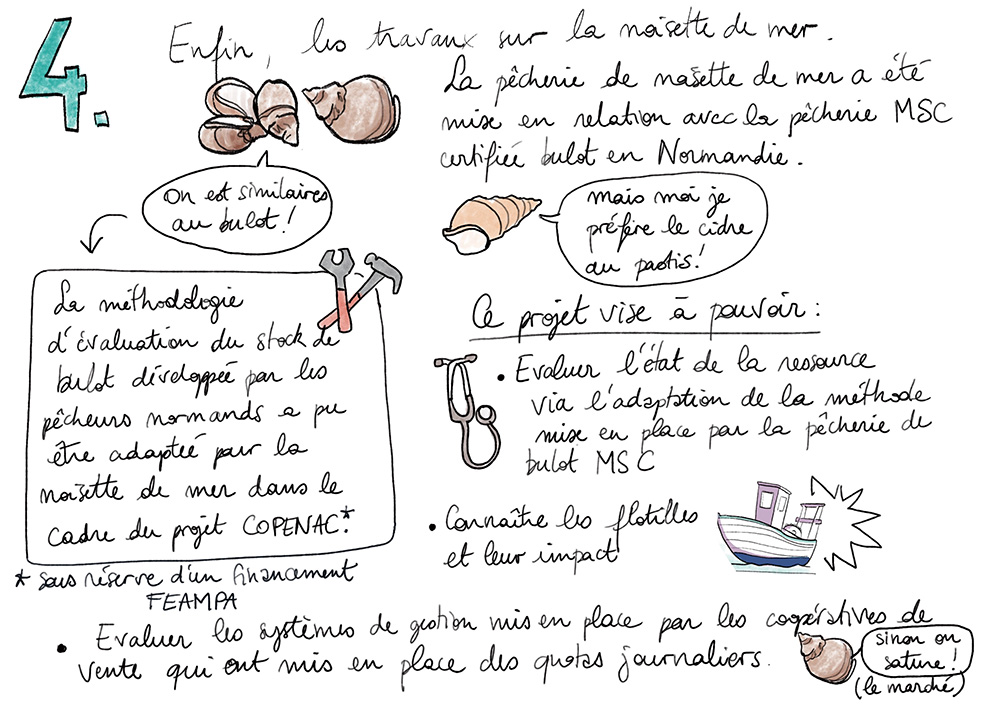 4.
Enfin, les travaux sur la noisette de mer.
La pêcherie de noisette de mer a été
mise en relation avec la pêcherie MSC
certifiée bulot en Normandie.
On est similaires
au bulot !
mais moi je
préfère le cidre
au pastis !
La méthodologie
d'évaluation du stock de
bulot développée par les
pêcheurs normands a pu
être adaptée pour la
noisette de mer dans le
cadre du projet COPENAC.*
* sous réserve d'un financement
FEAMPA
Ce projet vise à pouvoir :
• Evaluer l'état de la ressource
via l'adaptation de la méthode
mise en place par la pêcherie de
bulot MSC
• Connaître les flotilles
et leur impact
• Evaluer les systèmes de gestion mis en place par les coopératives de
vente qui ont mis en place des quotas journaliers.
sinon on
sature !
(le marché)